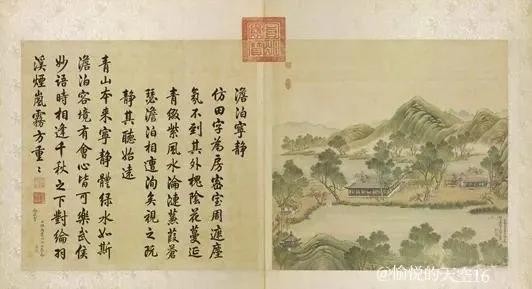 澹泊寧靜
仿田字為房密室周遮塵
氛不到其外槐陰花蔓延
青綴紫風水淪漣蒹葭蒼
瑟澹泊相遭洵矣視之既
靜其聽始遠
青山本來寧靜體綠水如斯
澹泊容境有會心皆可樂武侯
妙語時相逢千秋之下對綸羽
溪煙嵐霧方重〻
@愉悦的天空16